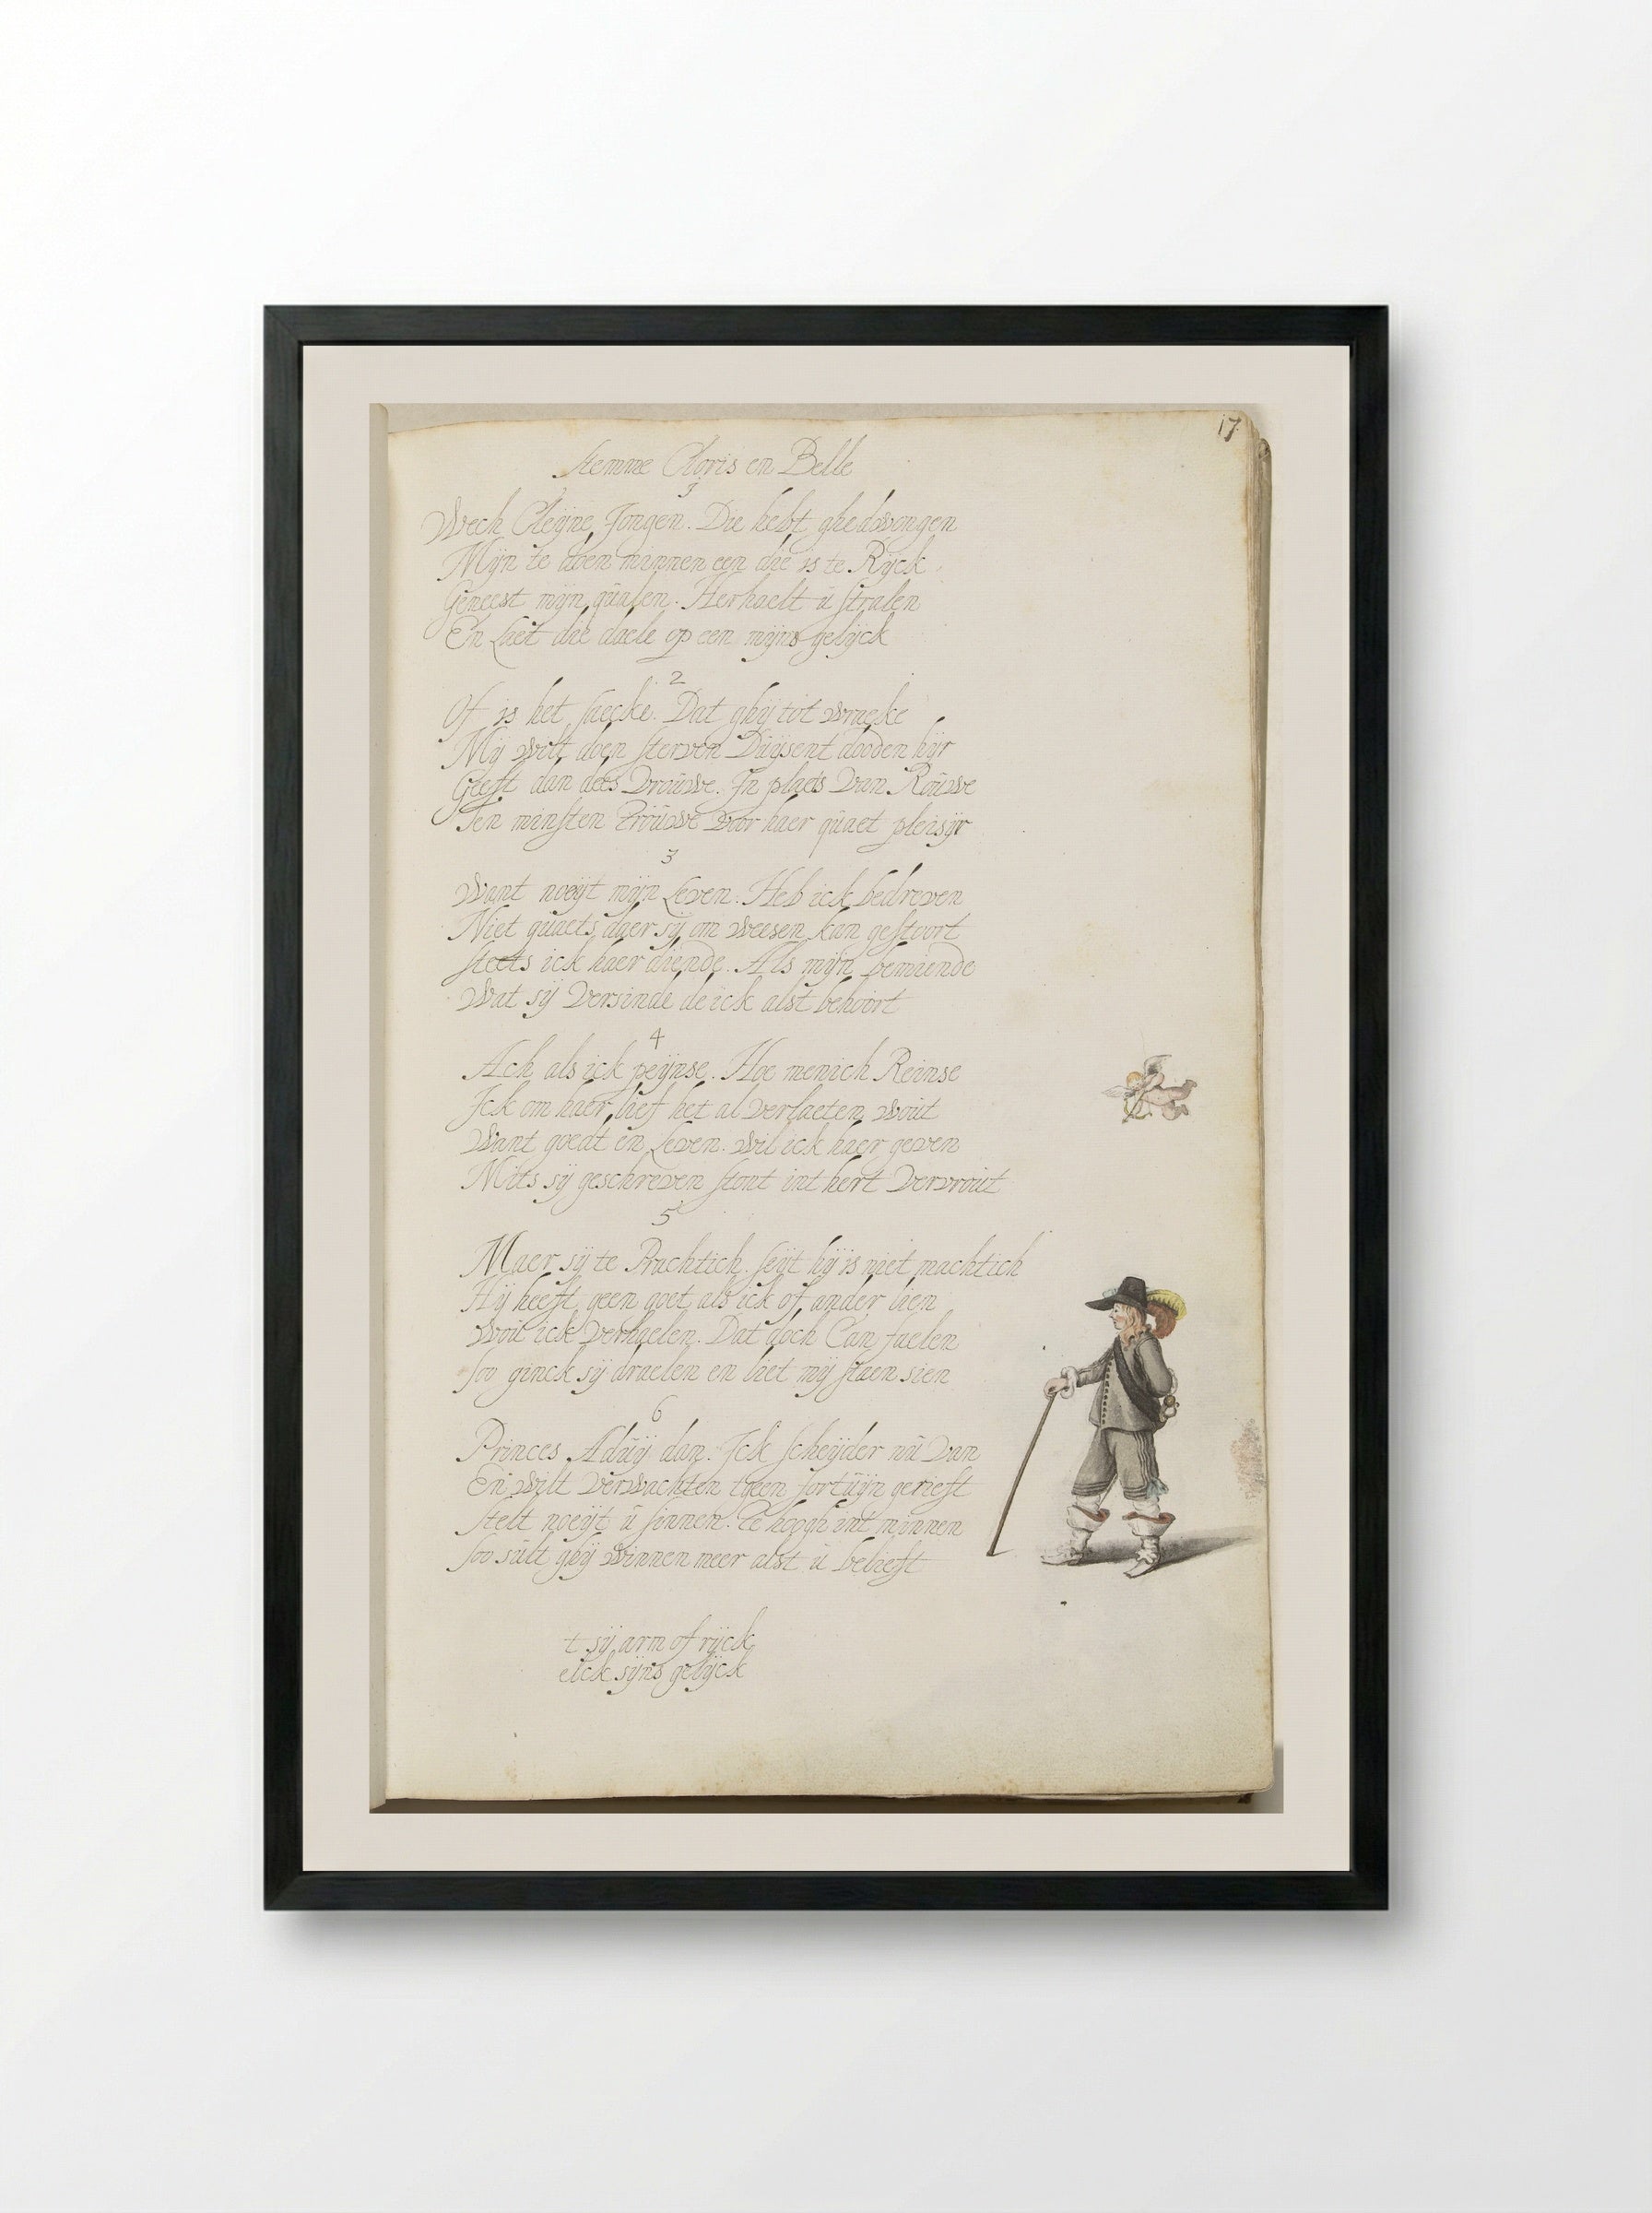 17
Stemme Cloris en Belle
Wech Cleÿne Jongen. Die hebt ghedwongen
Mijn te doen minnen een die is te Rÿck
Geneest mijn qualen. Herhaelt ū stralen
En Het die daele op een mijns gelÿck
2
Of is het saecke. Dat ghÿ tot wraeke
Mÿ wilt doen sterven Duÿsent dooden hÿr
Geeft dan dees Vrouwe. In plaets Van Roūwe
Ten minsten Troūwe Voor haer qūaet pleisÿr
3
Want noeÿt mijn Leven. Heb ick bedreven
Niet quaets daer sÿ om weesen kan gestoort
Steets ick haer diende. Als mijn beminde
Wat sÿ Versinde de ick alst behoort
4
Ach als ick peÿnse. Hoe menich Reinse
Ick om haer lief het al Verlaeten woūt
Want goedt en Leven. Wil ick haer geven
Mits sÿ geschreven stont int hert Vervroūt
5
Maer sÿ te Prachtich. seÿt hÿ is niet machtich
Hÿ heeft geen goet als ick of ander lien
Woū ick Verhaelen. Dat doch Can faelen
soo ginck sÿ draelen en liet mÿ staen sien
6
Princes Adūÿ dan. Ick scheÿder nū Van
En wilt Verwachten tgeen fortūÿn gerieft
Stelt noeÿt ū sinnen. Te hoogh int minnen
soo sūlt ghÿ Winnen meer alst ū belieft
t sÿ arm of rÿck
elck sÿns gelÿck